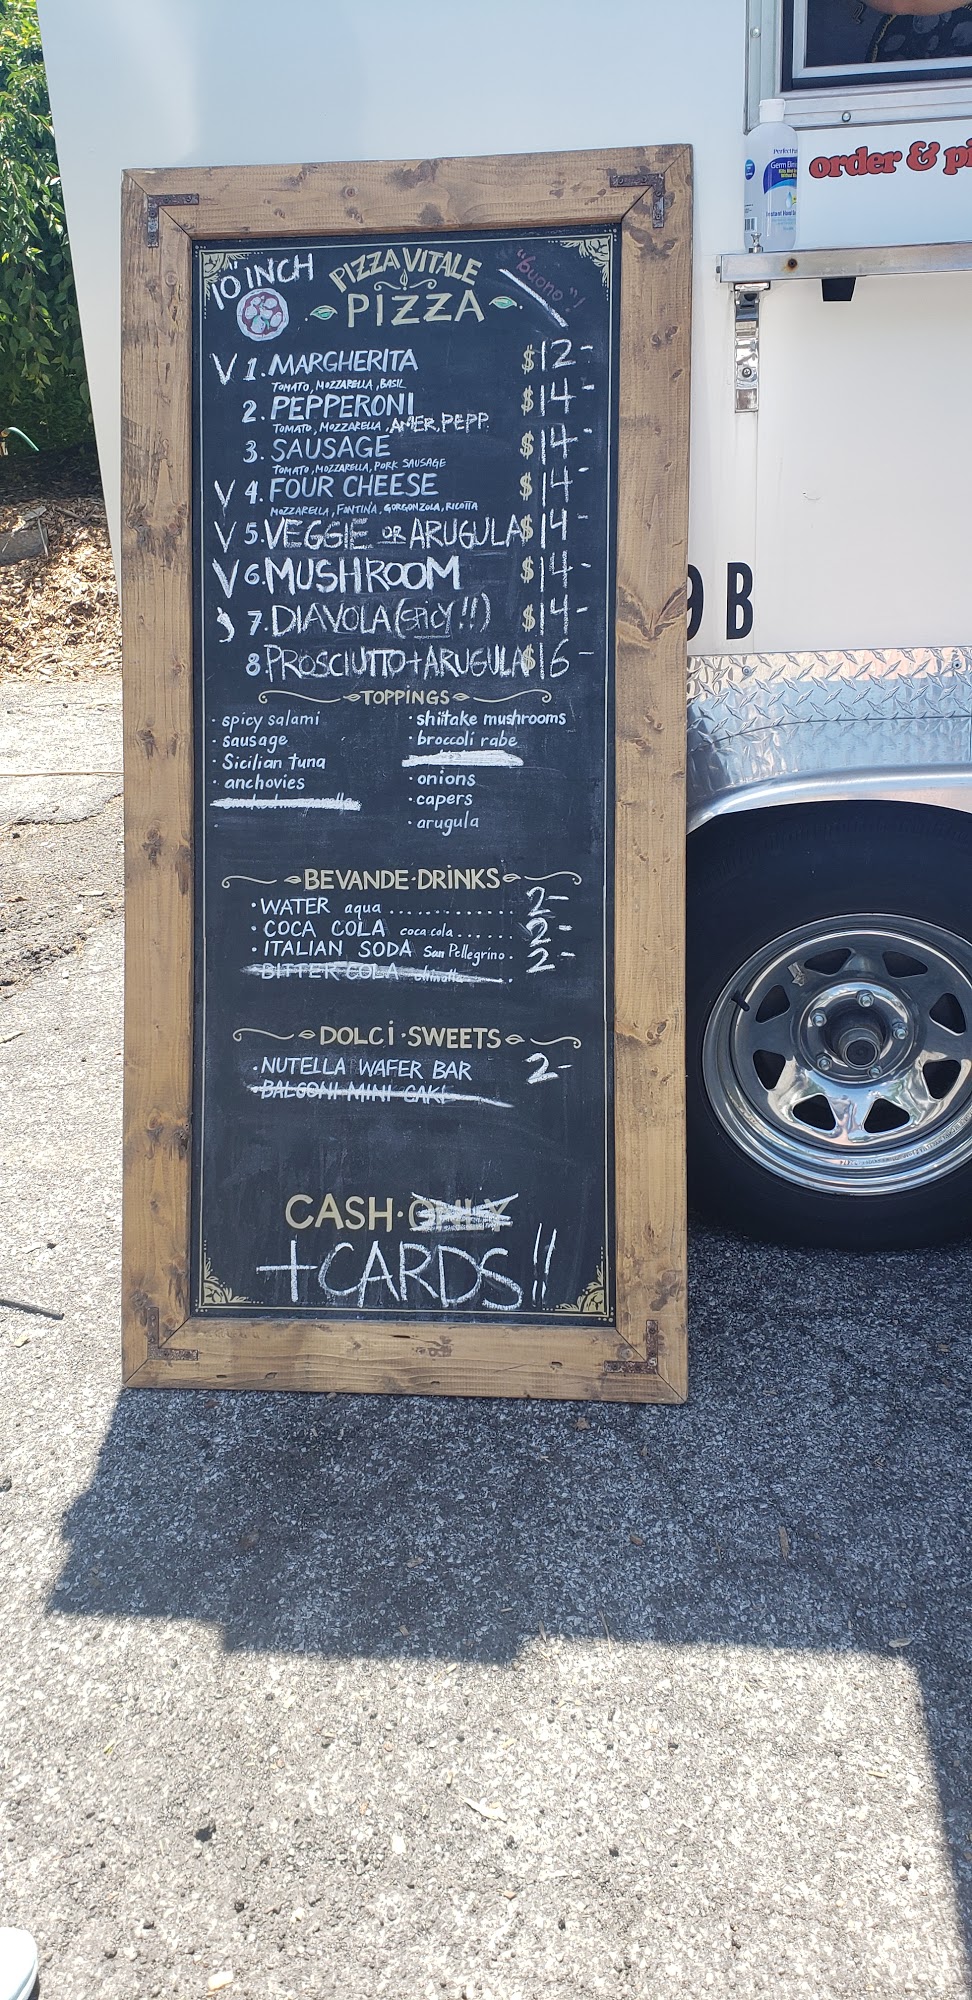 10" INCH
PIZZA VITALE
PIZZA
"buono"!
V 1. MARGHERITA $12-
TOMATO, MOZZARELLA, BASIL
2. PEPPERONI $14-
TOMATO, MOZZARELLA, AMER. PEPP.
3. SAUSAGE $14-
TOMATO, MOZZARELLA, PORK SAUSAGE
V 4. FOUR CHEESE $14-
MOZZARELLA, FONTINA, GORGONZOLA, RICOTTA
V 5. VEGGIE OR ARUGULA $14-
V 6. MUSHROOM $14-
7. DIAVOLA (SPICY!!) $14-
8. PROSCIUTTO + ARUGULA $16-
TOPPINGS
· spicy salami
· sausage
· Sicilian tuna
· anchovies
· shiitake mushrooms
· broccoli rabe
· onions
· capers
· arugula
BEVANDE·DRINKS
· WATER aqua .............. 2-
· COCA COLA coca cola ...... 2-
· ITALIAN SODA San Pellegrino. 2-
· BITTER COLA chinotto
DOLCI·SWEETS
· NUTELLA WAFER BAR 2-
· BALCONI MINI CAKE
CASH·ONLY
+CARDS!!
order & pi
Instant Hand
9 B